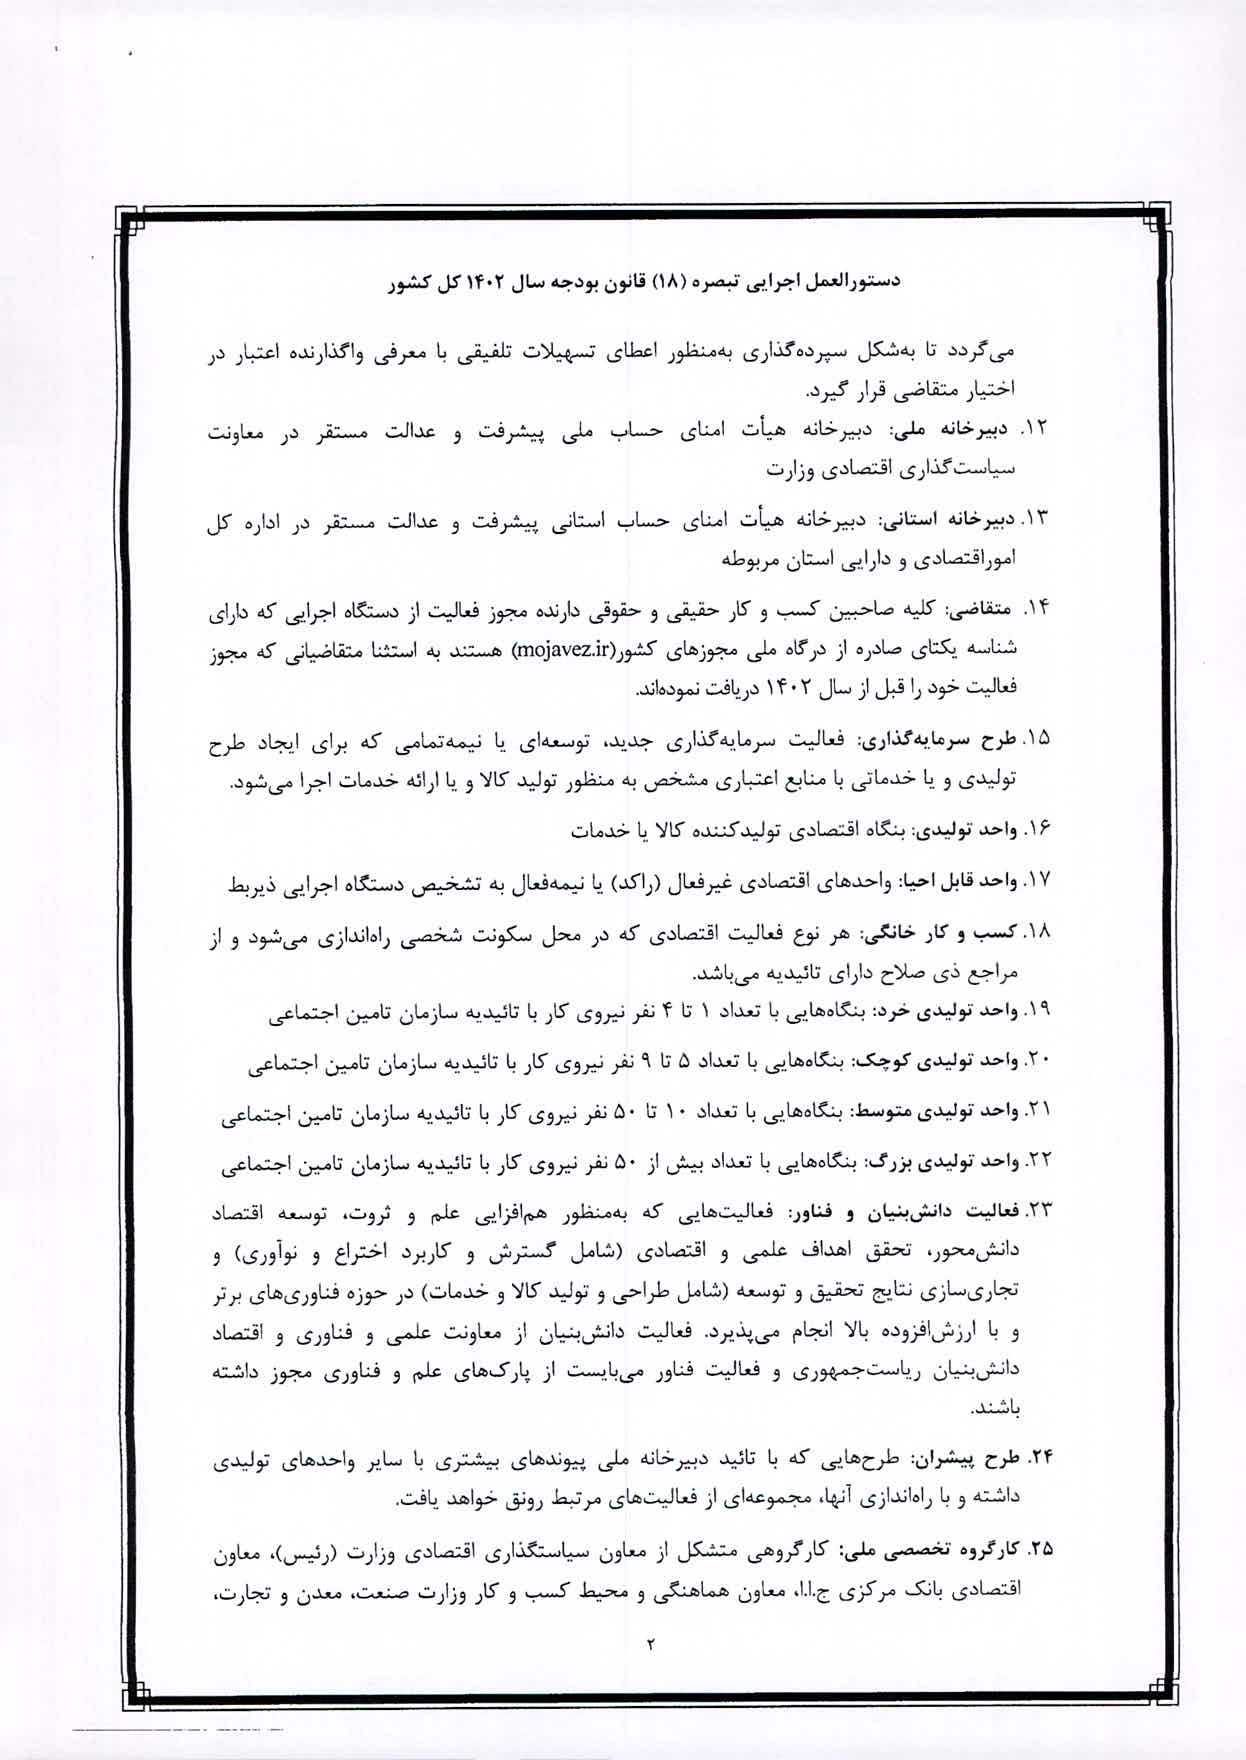 دستورالعمل اجرایی تبصره (۱۸) قانون بودجه سال ۱۴۰۲ کل کشور
می‌گردد تا به‌شکل سپرده‌گذاری به‌منظور اعطای تسهیلات تلفیقی با معرفی واگذارنده اعتبار در
اختیار متقاضی قرار گیرد.
۱۲. دبیرخانه ملی: دبیرخانه هیأت امنای حساب ملی پیشرفت و عدالت مستقر در معاونت
سیاست‌گذاری اقتصادی وزارت
۱۳. دبیرخانه استانی: دبیرخانه هیأت امنای حساب استانی پیشرفت و عدالت مستقر در اداره کل
اموراقتصادی و دارایی استان مربوطه
۱۴. متقاضی: کلیه صاحبین کسب و کار حقیقی و حقوقی دارنده مجوز فعالیت از دستگاه اجرایی که دارای
شناسه یکتای صادره از درگاه ملی مجوزهای کشور(mojavez.ir) هستند به استثنا متقاضیانی که مجوز
فعالیت خود را قبل از سال ۱۴۰۲ دریافت نموده‌اند.
۱۵. طرح سرمایه‌گذاری: فعالیت سرمایه‌گذاری جدید، توسعه‌ای یا نیمه‌تمامی که برای ایجاد طرح
تولیدی و یا خدماتی با منابع اعتباری مشخص به منظور تولید کالا و یا ارائه خدمات اجرا می‌شود.
۱۶. واحد تولیدی: بنگاه اقتصادی تولیدکننده کالا یا خدمات
۱۷. واحد قابل احیا: واحدهای اقتصادی غیرفعال (راکد) یا نیمه‌فعال به تشخیص دستگاه اجرایی ذیربط
۱۸. کسب و کار خانگی: هر نوع فعالیت اقتصادی که در محل سکونت شخصی راه‌اندازی می‌شود و از
مراجع ذی صلاح دارای تائیدیه می‌باشد.
۱۹. واحد تولیدی خرد: بنگاه‌هایی با تعداد ۱ تا ۴ نفر نیروی کار با تائیدیه سازمان تامین اجتماعی
۲۰. واحد تولیدی کوچک: بنگاه‌هایی با تعداد ۵ تا ۹ نفر نیروی کار با تائیدیه سازمان تامین اجتماعی
۲۱. واحد تولیدی متوسط: بنگاه‌هایی با تعداد ۱۰ تا ۵۰ نفر نیروی کار با تائیدیه سازمان تامین اجتماعی
۲۲. واحد تولیدی بزرگ: بنگاه‌هایی با تعداد بیش از ۵۰ نفر نیروی کار با تائیدیه سازمان تامین اجتماعی
۲۳. فعالیت دانش‌بنیان و فناور: فعالیت‌هایی که به‌منظور هم‌افزایی علم و ثروت، توسعه اقتصاد
دانش‌محور، تحقق اهداف علمی و اقتصادی (شامل گسترش و کاربرد اختراع و نوآوری) و
تجاری‌سازی نتایج تحقیق و توسعه (شامل طراحی و تولید کالا و خدمات) در حوزه فناوری‌های برتر
و با ارزش‌افزوده بالا انجام می‌پذیرد. فعالیت دانش‌بنیان از معاونت علمی و فناوری و اقتصاد
دانش‌بنیان ریاست‌جمهوری و فعالیت فناور می‌بایست از پارک‌های علم و فناوری مجوز داشته
باشند.
۲۴. طرح پیشران: طرح‌هایی که با تائید دبیرخانه ملی پیوندهای بیشتری با سایر واحدهای تولیدی
داشته و با راه‌اندازی آنها، مجموعه‌ای از فعالیت‌های مرتبط رونق خواهد یافت.
۲۵. کارگروه تخصصی ملی: کارگروهی متشکل از معاون سیاستگذاری اقتصادی وزارت (رئیس)، معاون
اقتصادی بانک مرکزی ج.ا.ا، معاون هماهنگی و محیط کسب و کار وزارت صنعت، معدن و تجارت،
۲